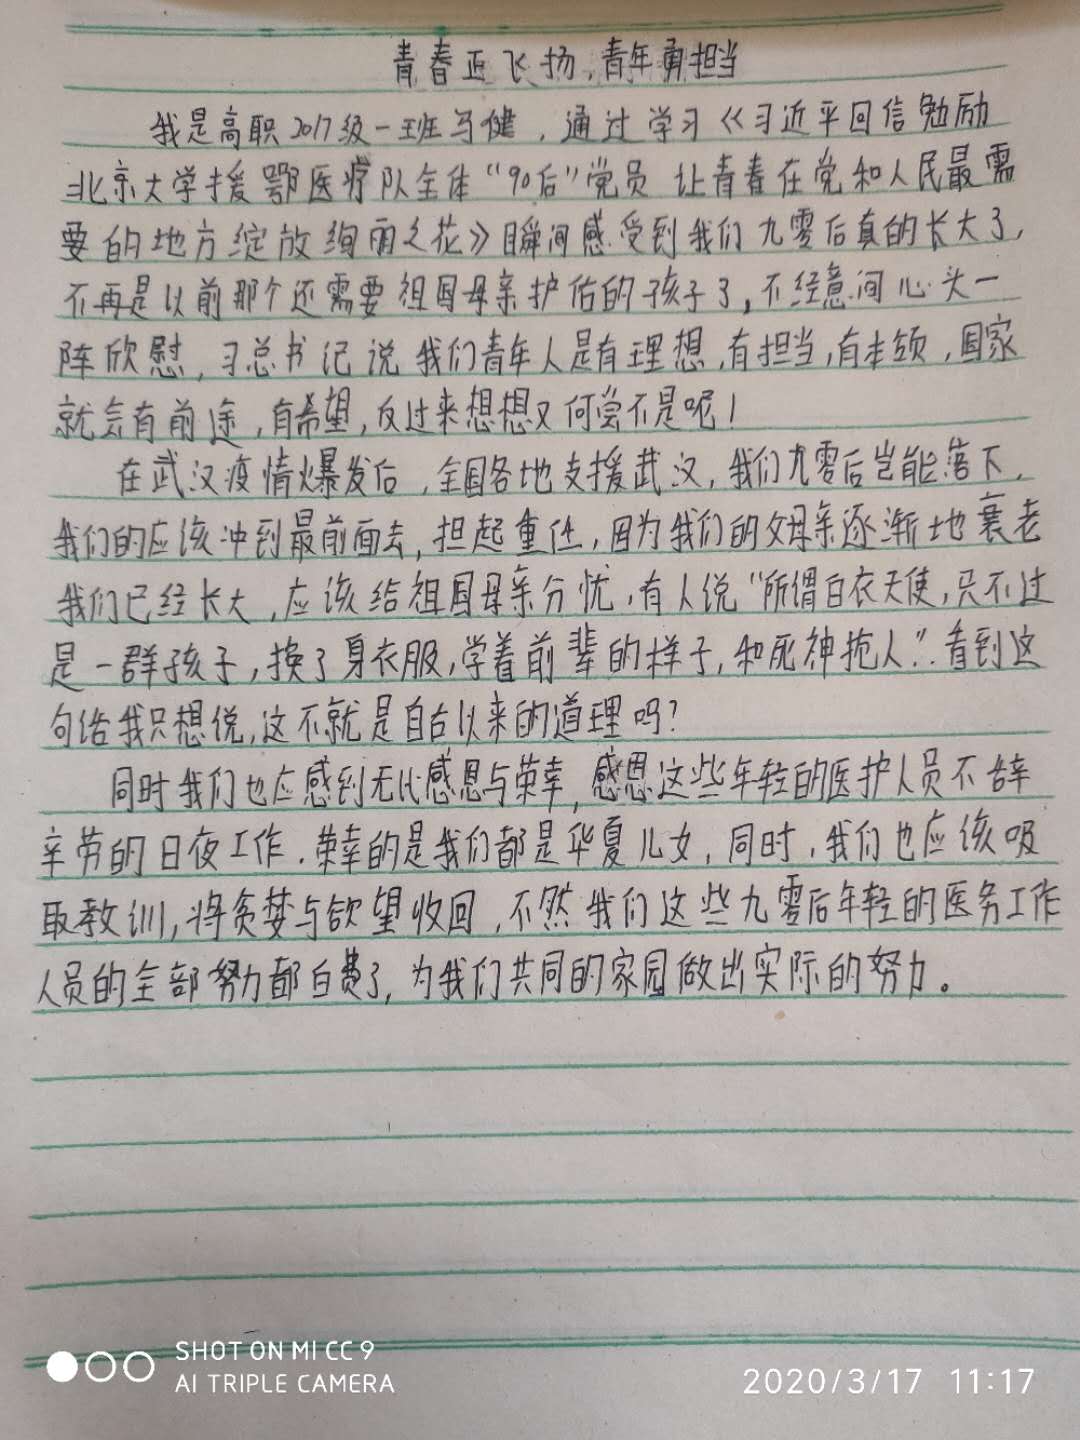 青春正飞扬,青年勇担当
我是高职2017级一班马健,通过学习《习近平回信勉励
北京大学援鄂医疗队全体“90后”党员 让青春在党和人民最需
要的地方绽放绚丽之花》瞬间感受到我们九零后真的长大了,
不再是以前那个还需要祖国母亲护佑的孩子了,不经意间心头一
阵欣慰,习总书记说我们青年人是有理想,有担当,有本领,国家
就会有前途,有希望,反过来想想又何尝不是呢!
在武汉疫情爆发后,全国各地支援武汉,我们九零后岂能落下,
我们的应该冲到最前面去,担起重任,因为我们的父母亲逐渐地衰老
我们已经长大,应该给祖国母亲分忧,有人说“所谓白衣天使,只不过
是一群孩子,换了身衣服,学着前辈的样子,和死神抢人”.看到这
句话我只想说,这不就是自古以来的道理吗?
同时我们也应感到无比感恩与荣幸,感恩这些年轻的医护人员不辞
辛劳的日夜工作.荣幸的是我们都是华夏儿女,同时,我们也应该吸
取教训,将贪婪与欲望收回,不然我们这些九零后年轻的医务工作
人员的全部努力都白费了,为我们共同的家园做出实际的努力。
SHOT ON MI CC 9
AI TRIPLE CAMERA
2020/3/17 11:17